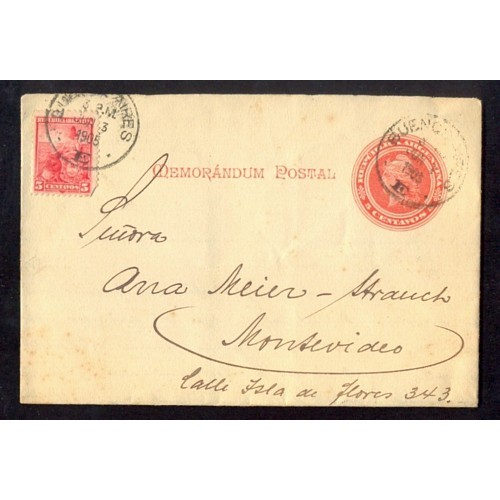 BUENOS AIRES
P.M.
3
1905
5 CENTAVOS 5
MEMORÁNDUM POSTAL
BUENOS AIRES
1905
REPUBLICA ARGENTINA
5 CENTAVOS
Señora
Ana Meier-Strauch
Montevideo
Calle Isla de flores 343.